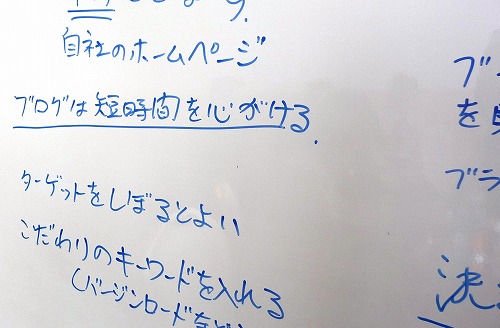 自社のホームページ
ブログは短時間を心がける.
ターゲットをしぼるとよい
こだわりのキーワードを入れる
(バージンロードなど
ブ
を
ブラ
決